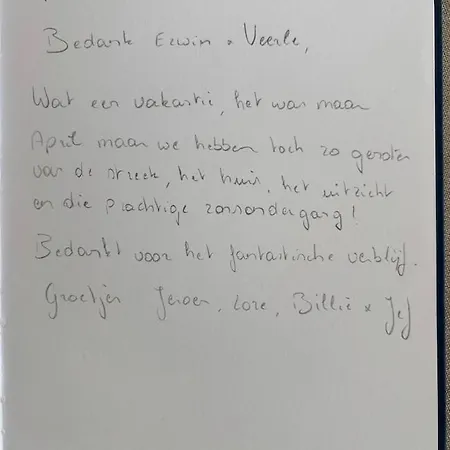 Bedankt Erwin & Veerle,
Wat een vakantie, het was maar
April maar we hebben toch zo genoten
van de streek, het huis, het uitzicht
en die prachtige zonsondergang!
Bedankt voor het fantastische verblijf.
Groetjes Jeroen, Lore, Billie & Jef